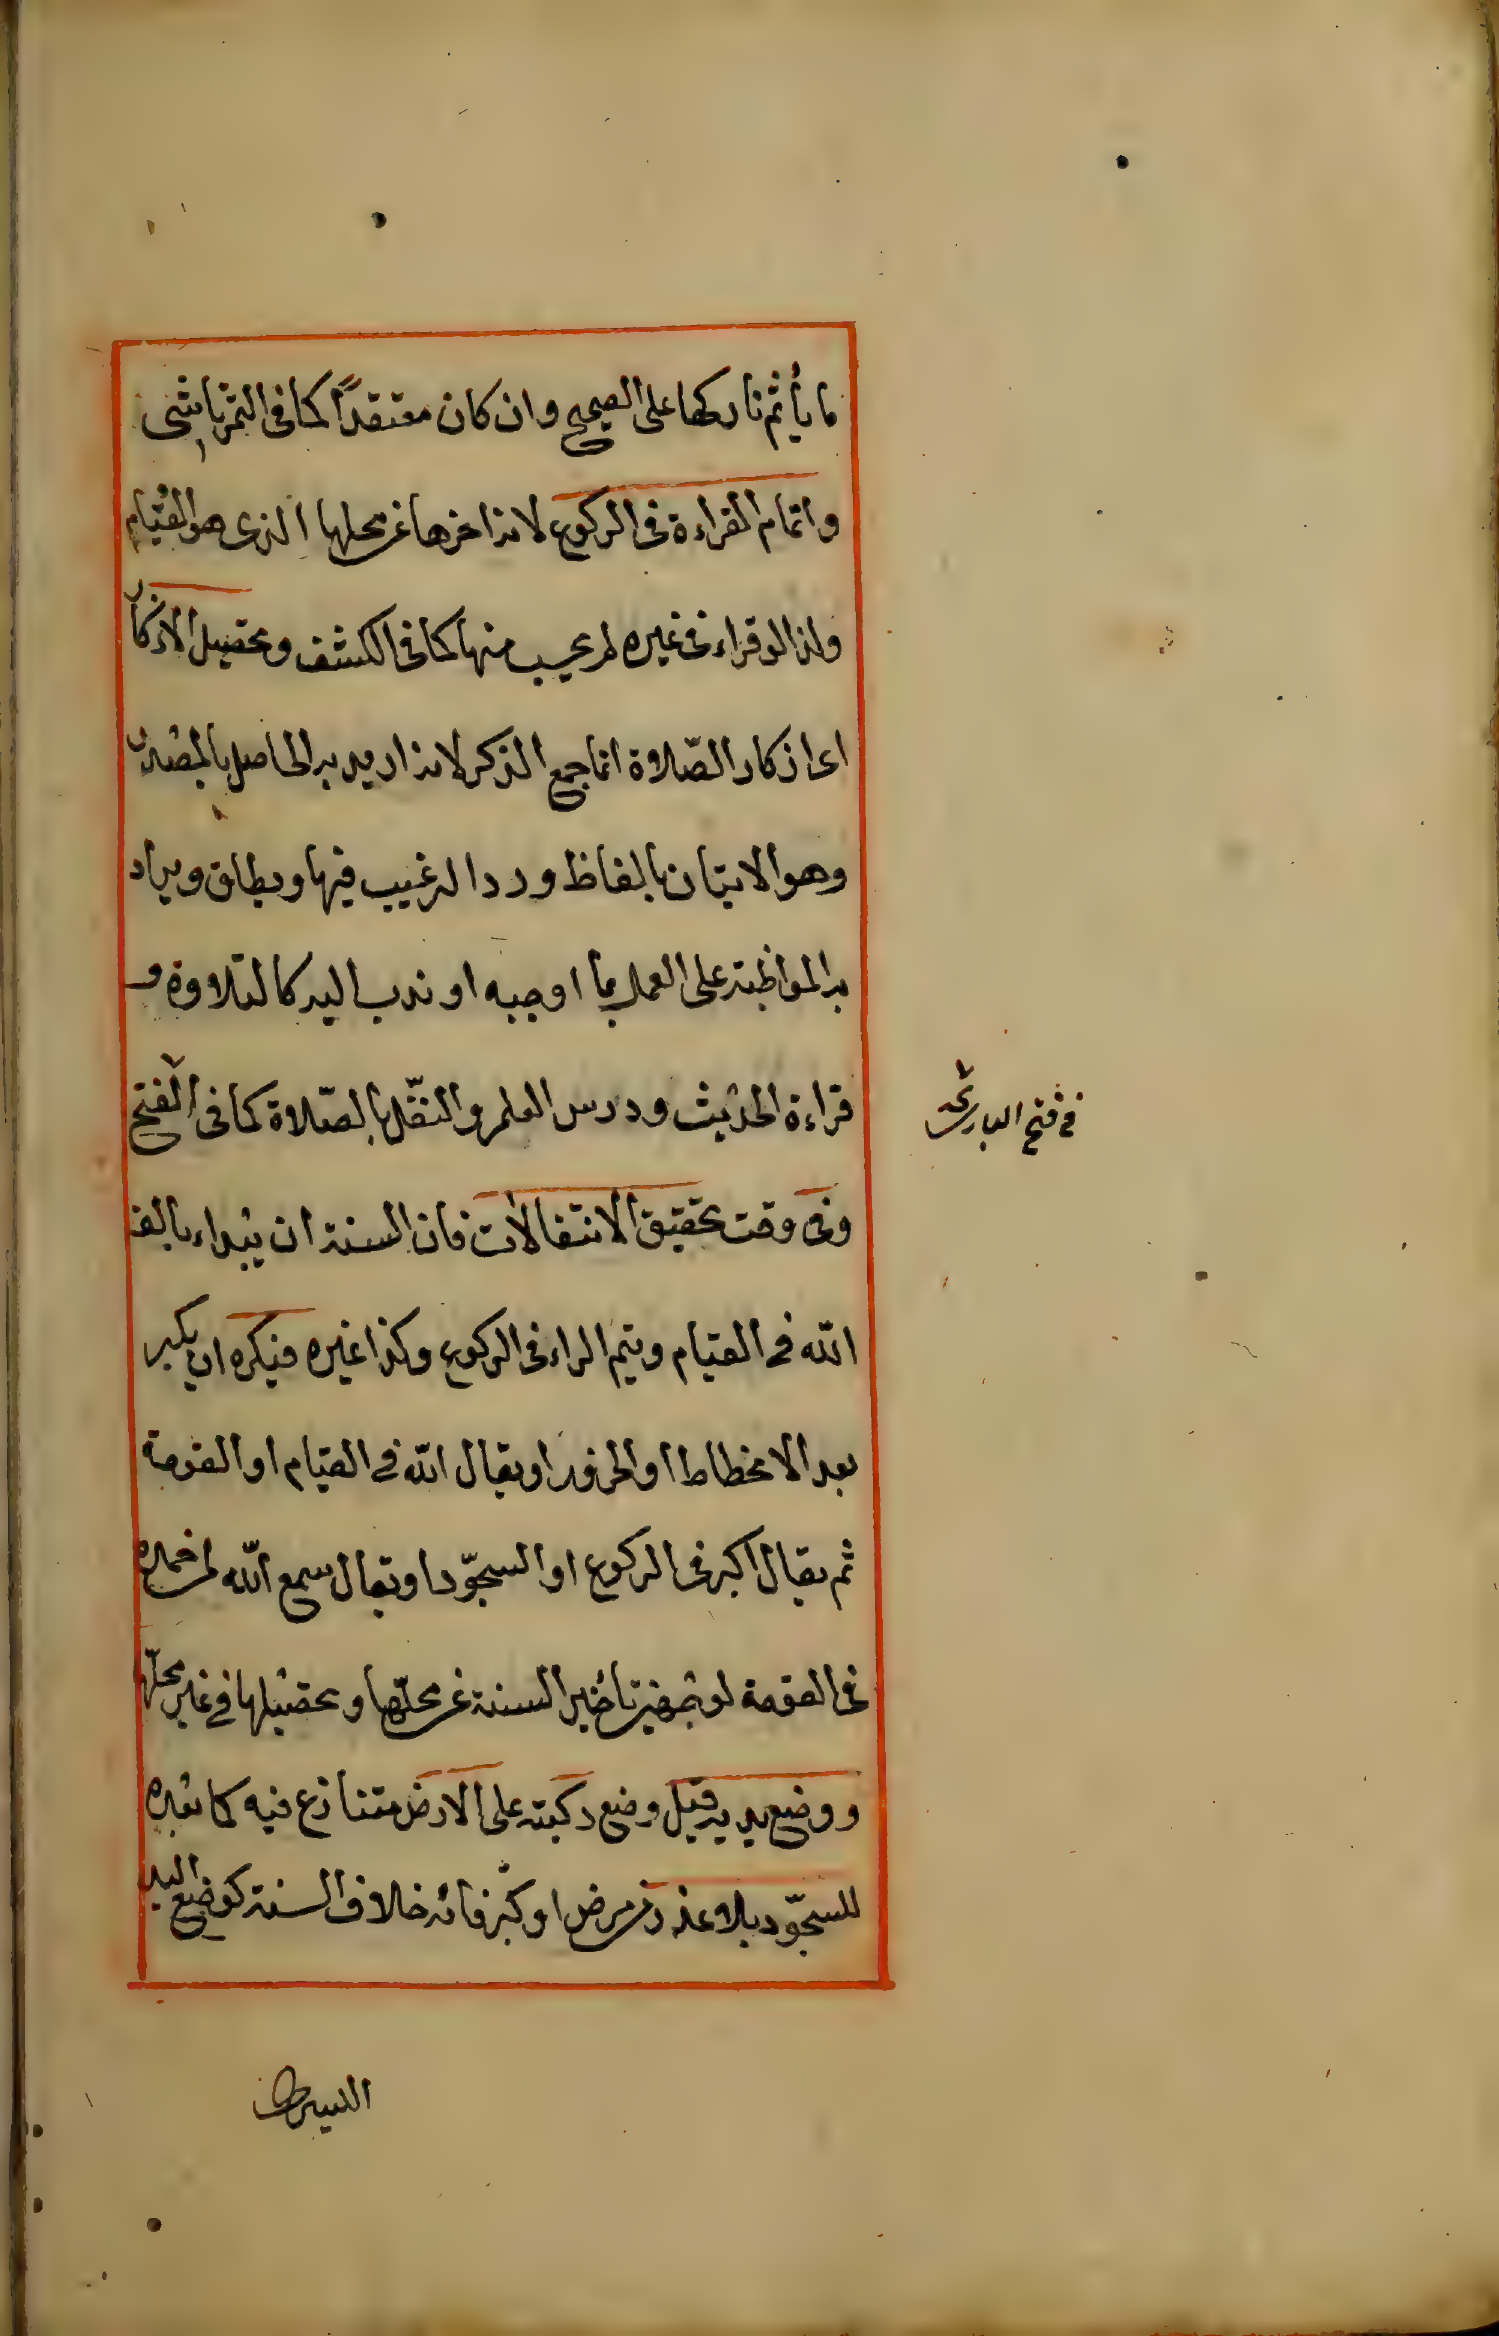 ما يأثم تاركها على الصحيح وان كان معتقدًا كما في التمرتاشى
واتمام القراءة فى الركوع لانه اخرها عن محلها الذى هو القيام
ولذا لو قراء فى غيره لم يجب منها كما فى الكشف وتحصيل الاذكار
اى اذكار الصّلاة انما جمع الذكر لانه اريد به الحاصل بالمصدر
وهو الاتيان بالفاظ ورد الترغيب فيها ويطلق ويراد
به المواظبة على العمل بما اوجبه او ندب اليه كالتلاوة و
قراءة الحديث ودرس العلم والنفّل بالصّلاة كما فى الفتح
وفى وقت تحقيق الانتقالات فان السنة ان يبداء بالف
الله فى القيام ويتم الراء فى الركوع وكذا غيره فيكره ان يكبر
بعد الانحطاط او الخرور او يقال الله فى القيام او القومة
ثم يقال اكبر فى الركوع او السجّود او يقال سمع الله لمن حمده
فى القومة لو تاخير السنة عن محلّها وتحصيلها فى غير محلّها
ووضع يديه قبل وضع ركبته على الارض متنازع فيه كما
للسجّود بلا عذر من مرض او كبر فانه خلاف السنة كوضع اليد
اليسرى
فى فتح البارى